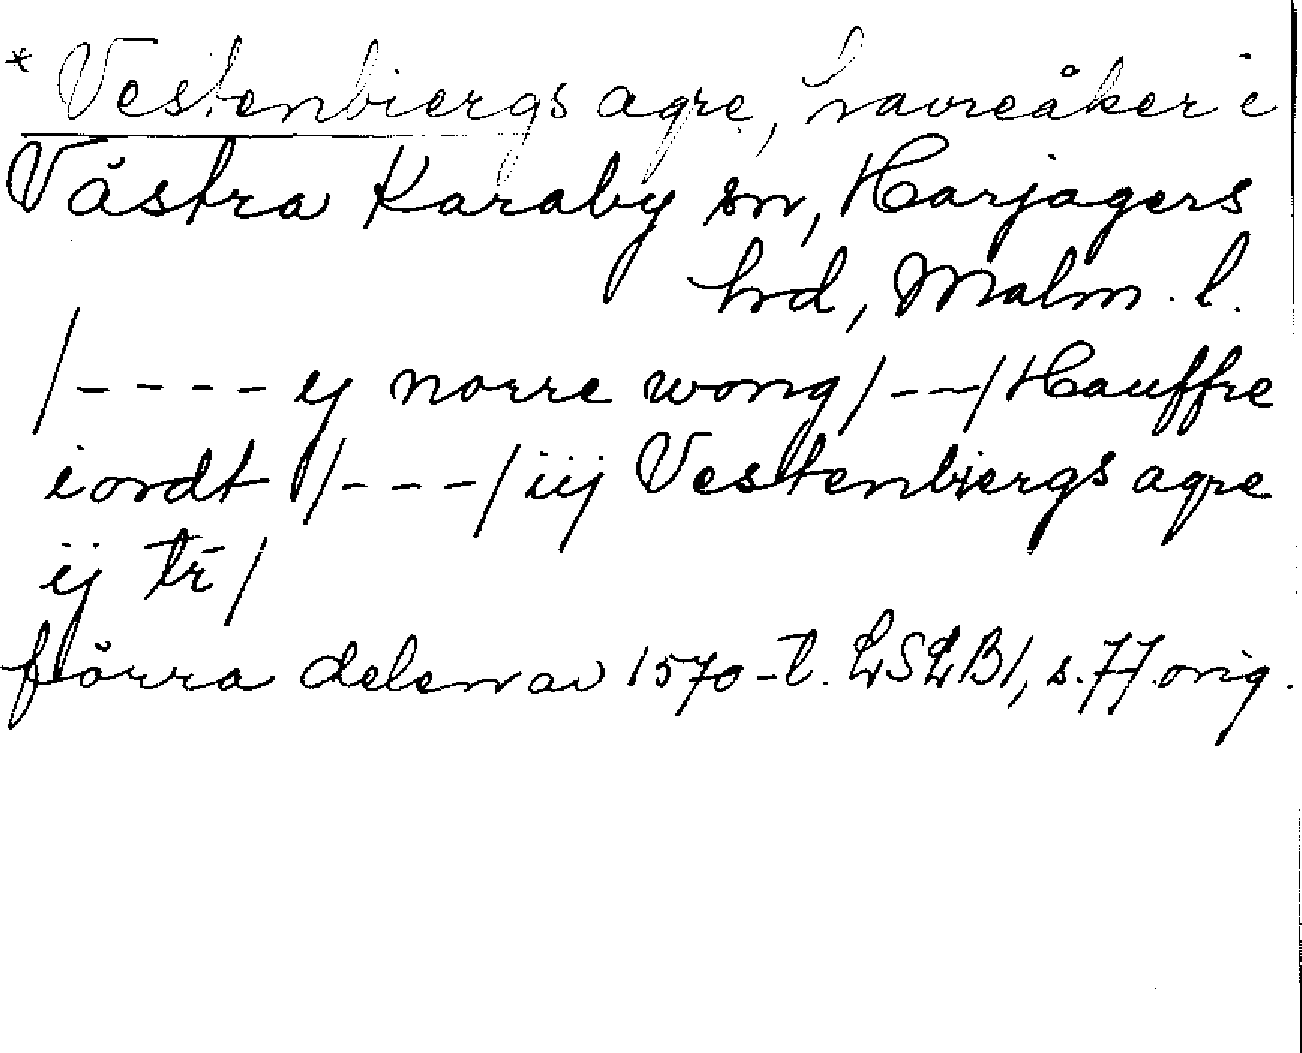 * Vestenbiergs agre, havreåker i
Västra Karaby sn, Harjagers
hrd, Malm. l.
/---- ij norre wong/---/Hauffre
iordt /---/iij Vestenbiergs agre
ij tr/
förra delen av 1570-t. LSLB1, s. 77 orig.